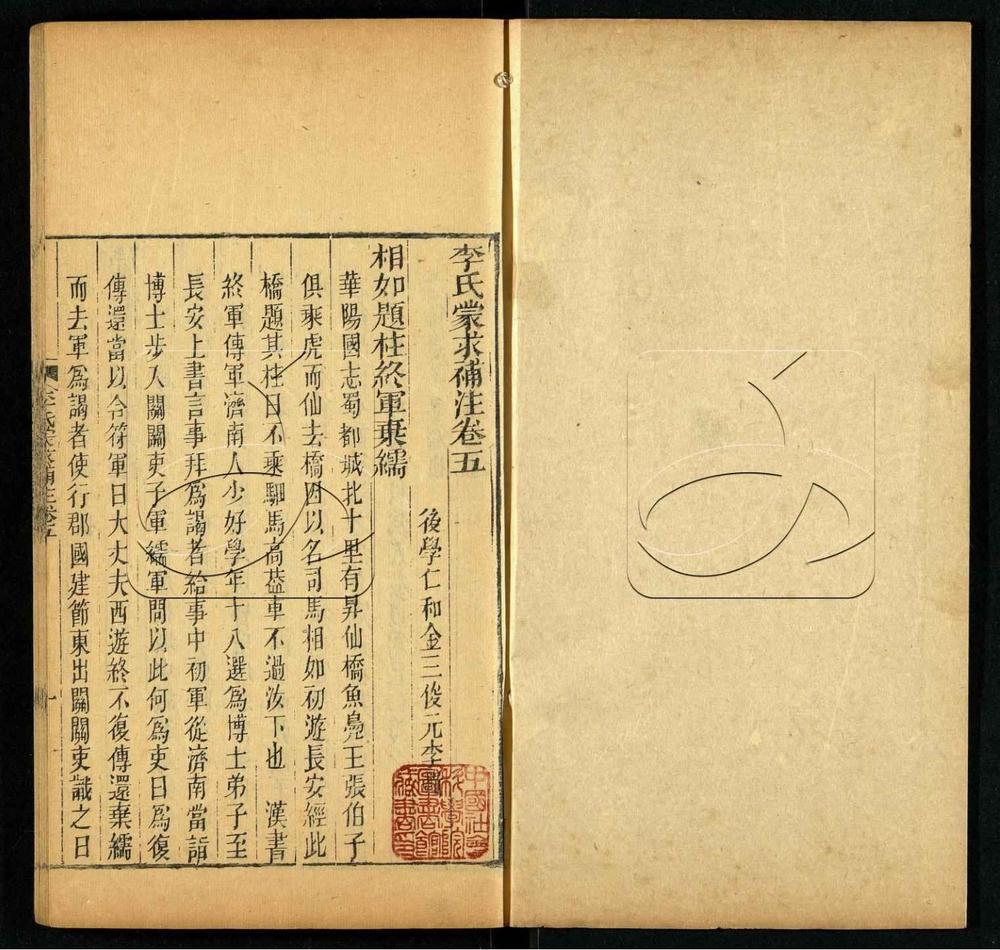 李氏蒙求補注卷五
後學仁和金三俊元李
相如題柱終軍棄繻
華陽國志蜀都城北十里有昇仙橋魚鳧王張伯子
俱乘虎而仙去橋因以名司馬相如初遊長安經此
橋題其柱曰不乘駟馬高葢車不過汝下也　漢書
終軍傳軍濟南人少好學年十八選爲博士弟子至
長安上書言事拜爲謁者給事中初軍從濟南當詣
博士步入關關吏予軍繻軍問以此何爲吏曰爲復
傳還當以合符軍曰大丈夫西遊終不復傳還棄繻
而去軍爲謁者使行郡國建節東出關關吏識之曰
李氏蒙求補注卷五
一
中國社會
科學院
圖書館
藏書印